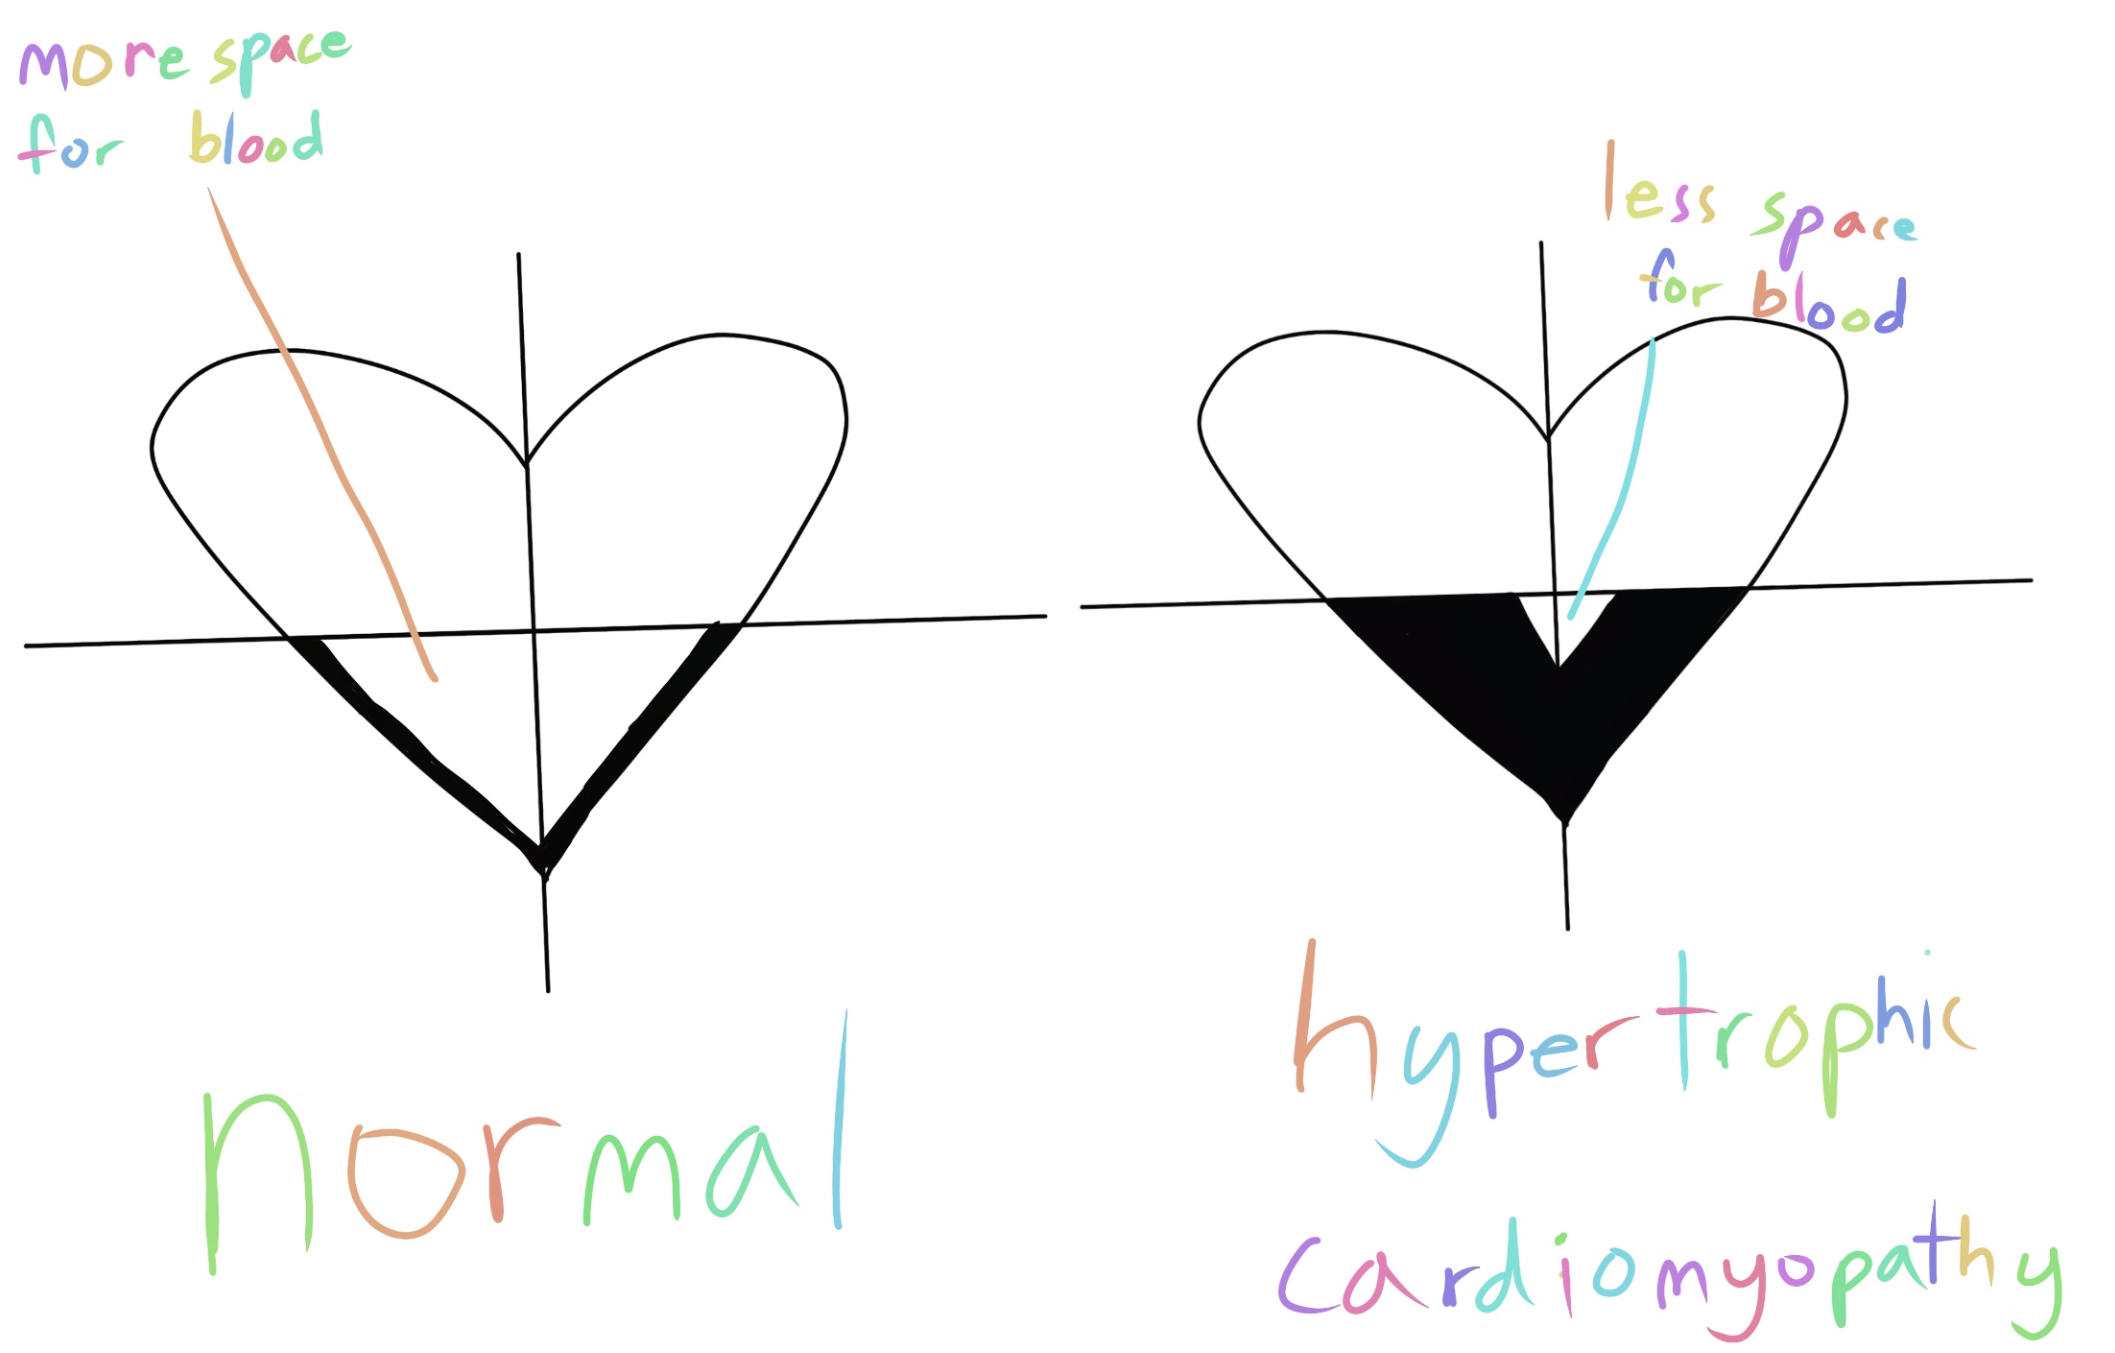 more space
for blood
less space
for blood
normal
hypertrophic
cardiomyopathy